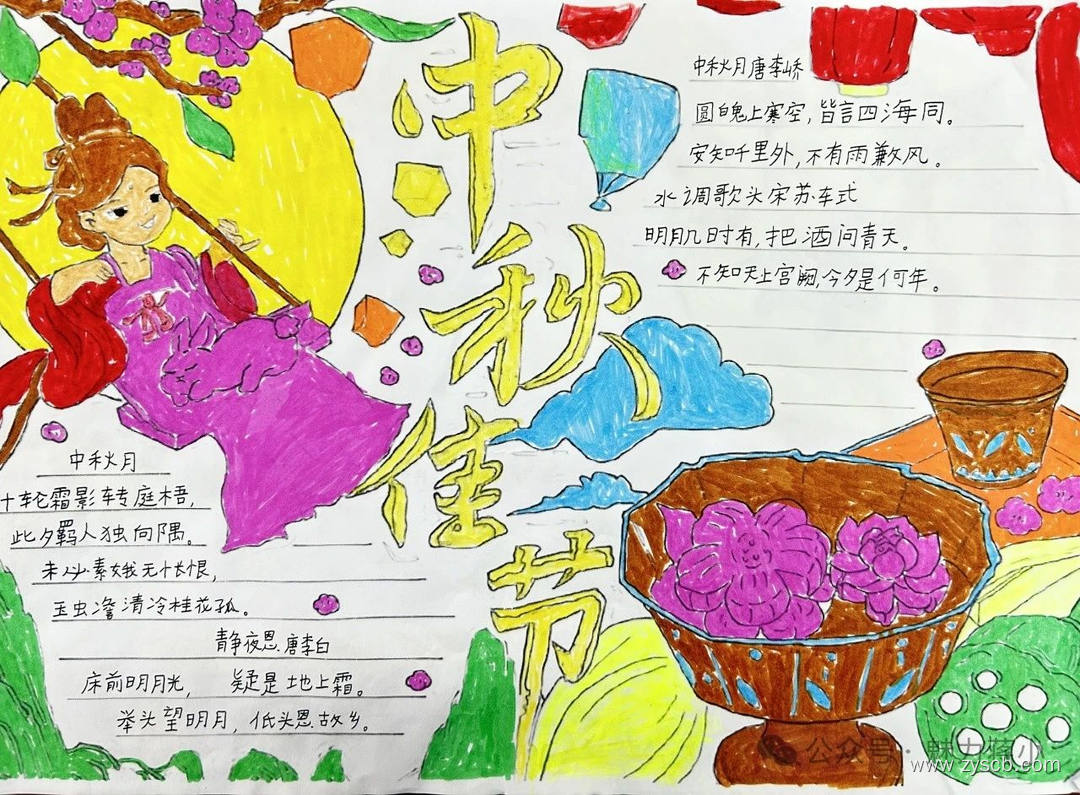 中秋佳节
中秋月唐李峤
圆魄上寒空，皆言四海同。
安知千里外，不有雨兼风。
水调歌头宋苏车式
明月几时有，把酒问青天。
不知天上宫阙，今夕是何年。
中秋月
十轮霜影转庭梧，
此夕羁人独向隅。
未必素娥无怅恨，
玉虫蟾清冷桂花孤。
静夜思唐李白
床前明月光，疑是地上霜。
举头望明月，低头思故乡。
公众号·魅力蒋小
www.zyscb.com